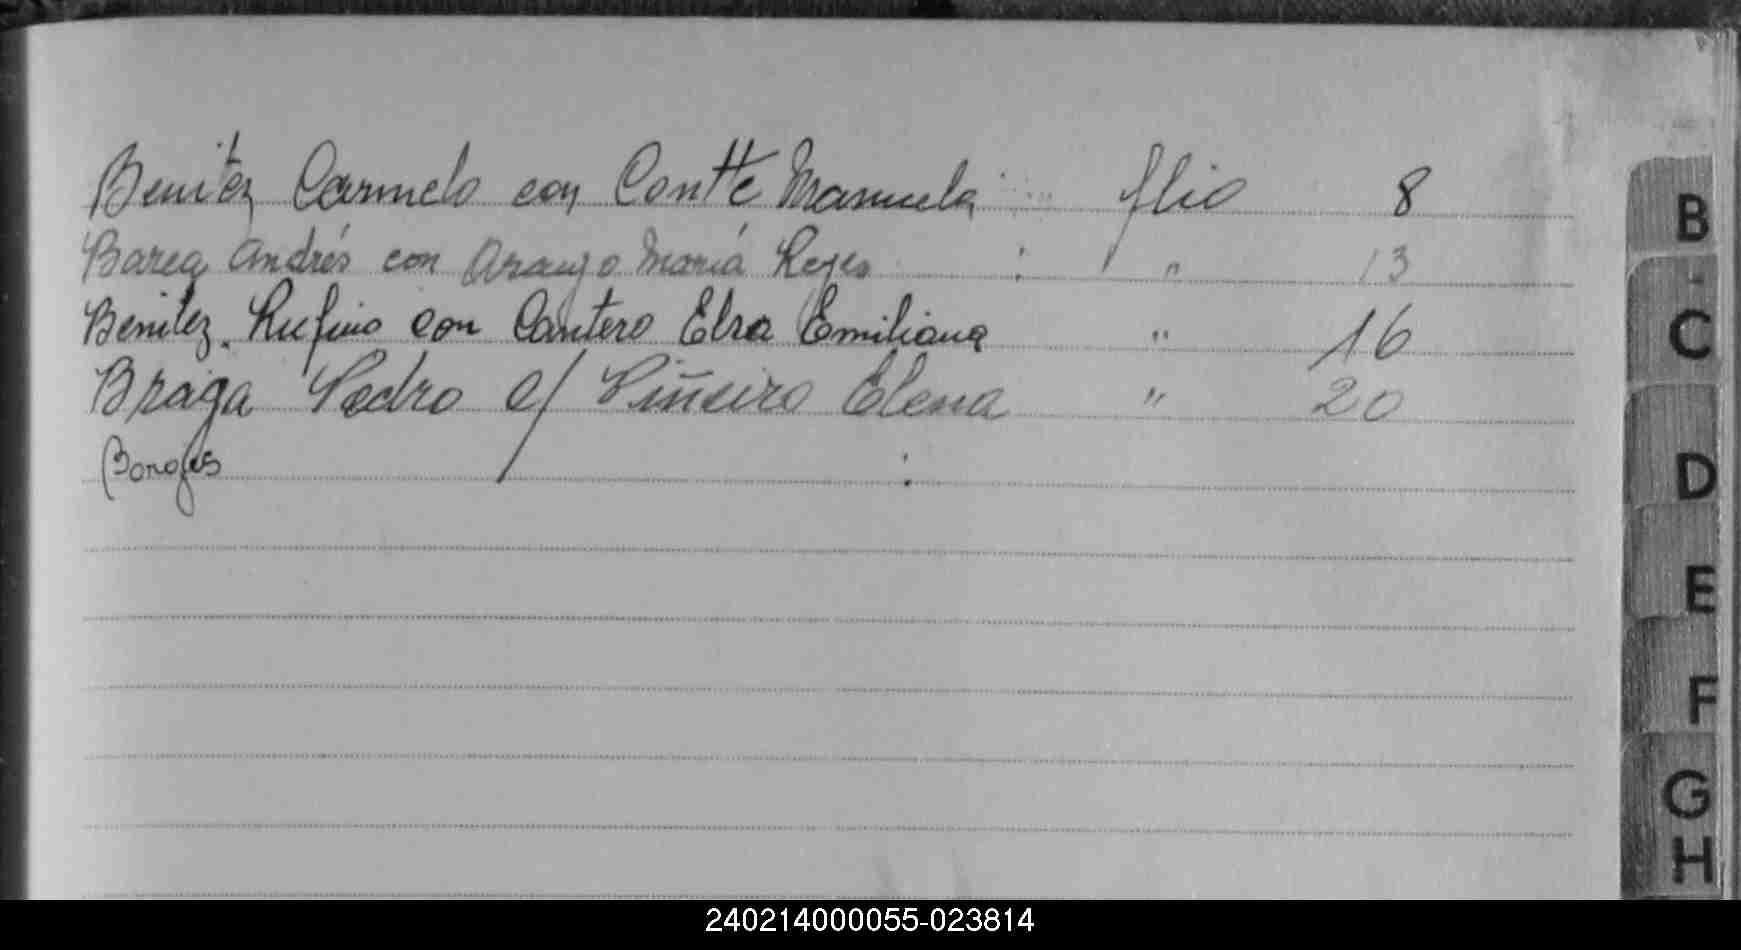 Benitez Carmelo con Contte Manuela flio 8
Barea Andrés con Araujo María Reyes " 13
Benitez Rufino con Cantero Elsa Emiliana " 16
Braga Pedro c/ Piñeiro Elena " 20
Borges
B
C
D
E
F
G
H
240214000055-023814